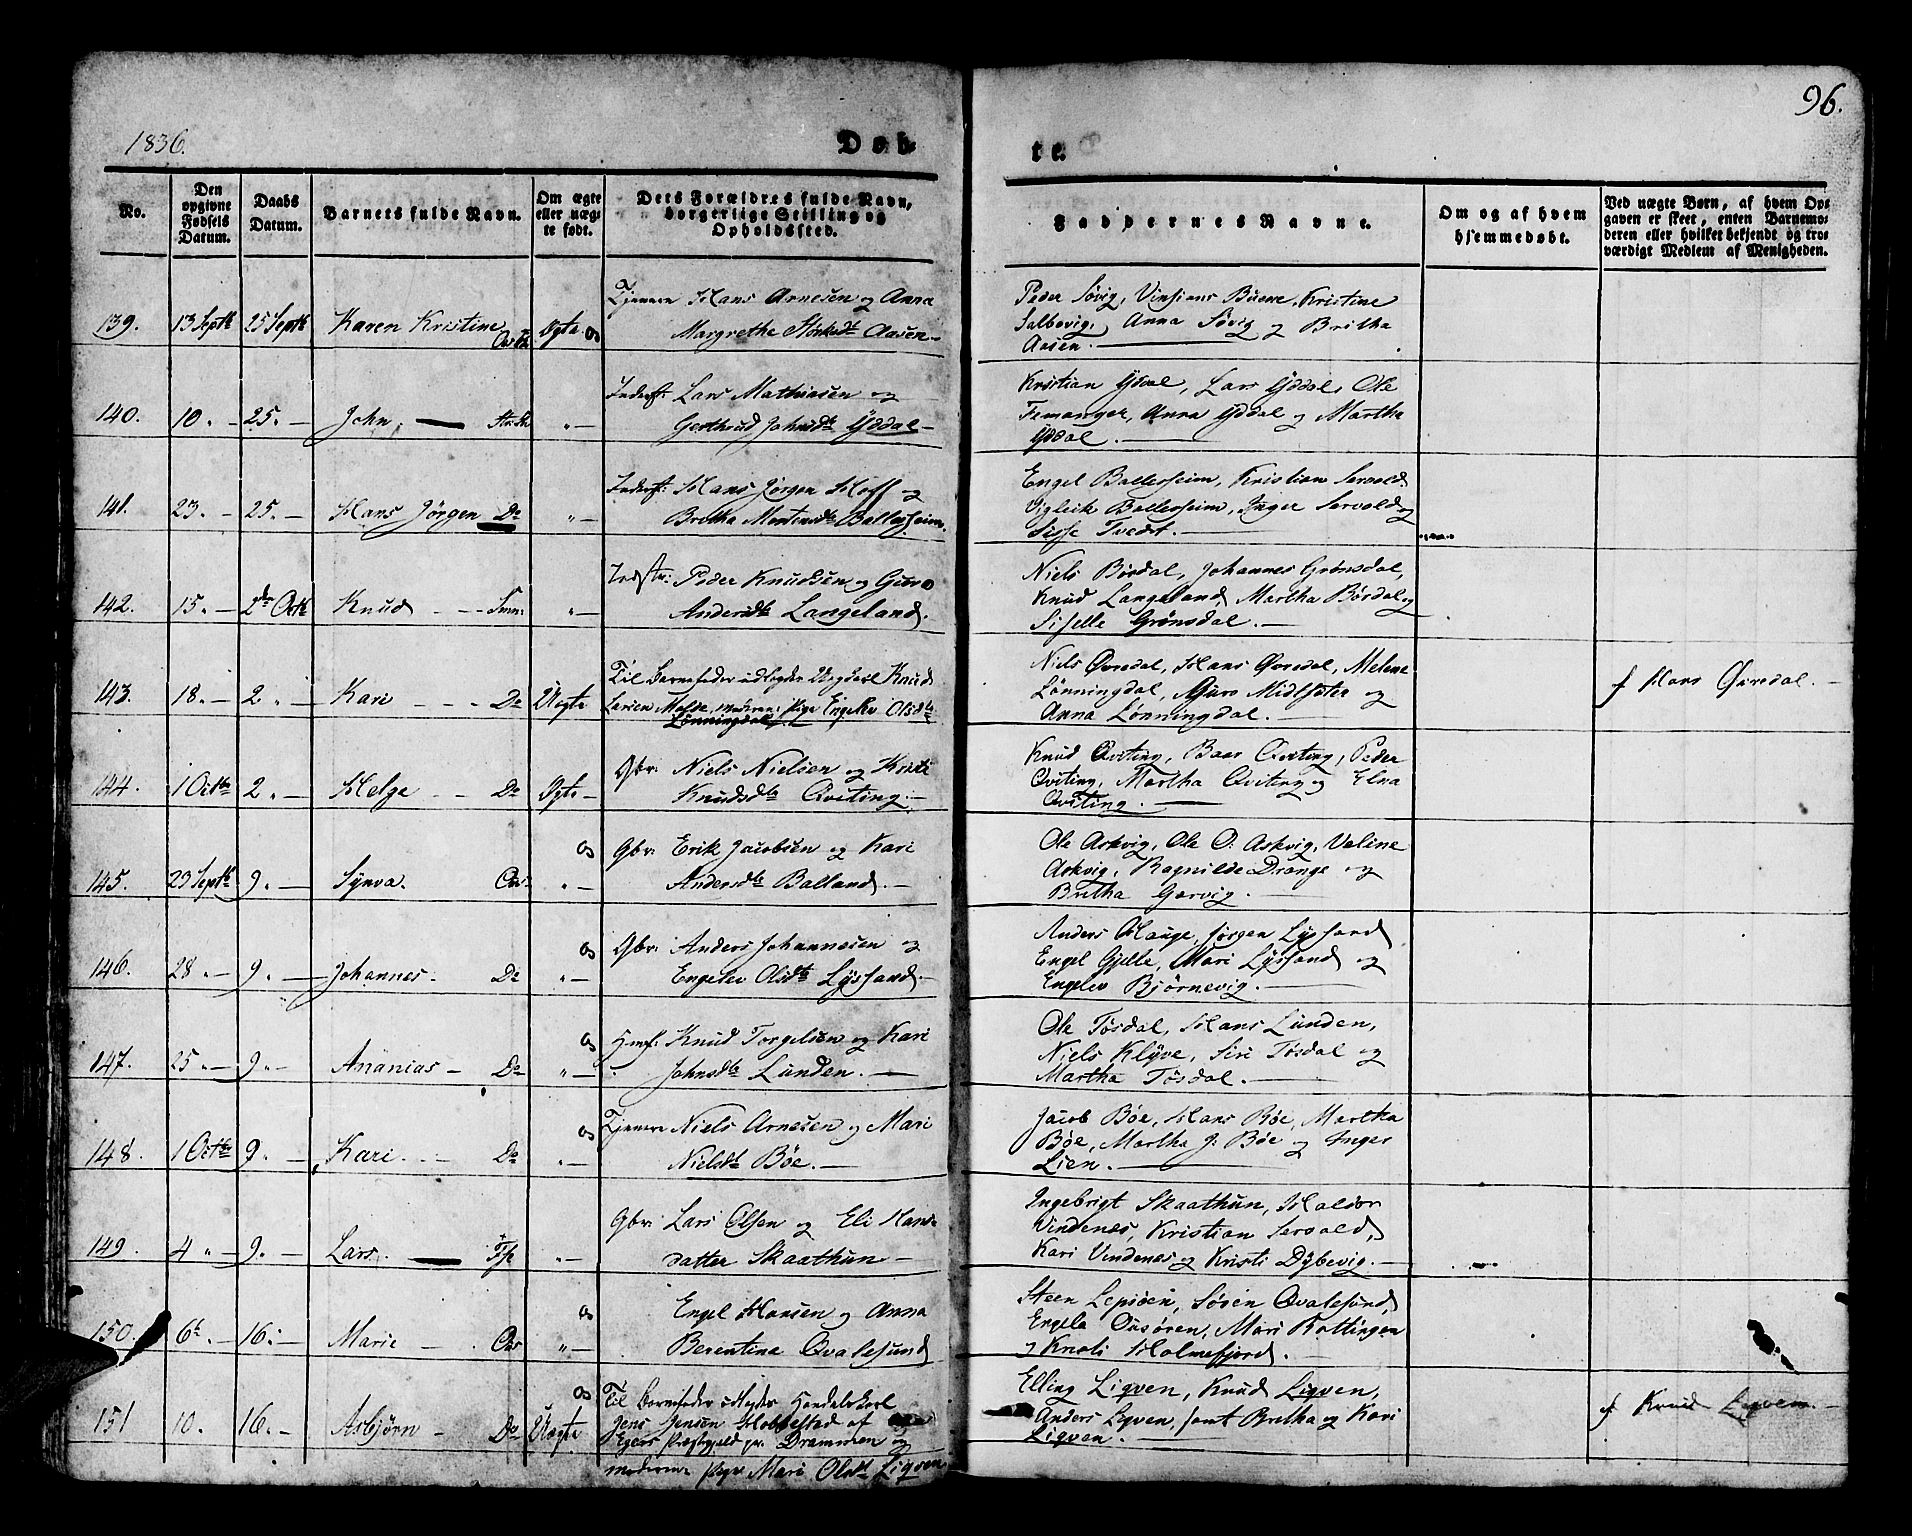 1836.
Døb-
te.
96.
No.
Den opgivne Fødsels Datum.
Daabs Datum.
Barnets fulde Navn.
Om ægte eller uægte født.
Dets Forældres fulde Navn, borgerlige Stilling og Opholdssted.
Faddernes Navne.
Om og af hvem hjemmedøbt.
Ved uægte Børn, af hvem Opgaven er skeet, enten Barnemoderen eller hvilket bekjendt og troværdigt Medlem af Menigheden.
139. 13 Septb 25 Septb Karen Kristine Ægte Os
Tjenere Hans Arnesen og Anna
Margrethe Aasen
Peder Søvig, Buene, Kristine
Salbovig, Anna Søvig og Britha
Aasen.
140. 10. 25. John
Inderst: Lars Mathiasen og
Gerthrud Johnsdtr Yddal
Kristian Yddal, Lars Yddal, Ole
Femanger, Anna Yddal og Martha
Yddal.
141. 23. 25. Hans Jørgen Do
Inderst: Hans Jørgen Hoff og
Britha Mortensdtr Ballesheim.
Engel Ballesheim, Kristian Servold
Vigleik Ballesheim, Inger Servold og
Sisse Tvedt.
142. 15. 2den Octb Knud
Peder Knudsen og Guro
Andersdtr Langeland.
Niels Børdal, Johannes Grønsdal,
Knud Langeland, Martha Børdal og
Siselle Grønsdal.
143. 18. 2. Kari Do Uægte
Til Barnefader udlagdes Ungkarl Knud
Larsen Molde, moderen: Pige Engelev Olsdtr
Lønningdal
Niels Øvredal, Hans Øvredal, Melene
Lønningdal, Guro Midtsæter og
Anna Lønningdal.
Hans Øvredal.
144. 1 Octbr 2. Helge Do Ægte
Gbr: Niels Nielsen og Kristi
Knudsdtr Qviting.
Knud Qviting, Baar Qviting, Peder
Qviting, Martha Qviting og Elna
Qviting.
145. 29 Septb 9. Synva. Os
Gbr: Erik Jacobsen og Kari
Andersdtr Balland.
Ole Askvig, Ole O. Askvig, Valine
Askvig, Ragnilde Drange og
Britha Gjervig.
146. 28. 9. Johannes. Do Os
Gbr: Anders Johannesen og
Engelev Olsdtr Lysfand.
Anders Hauge, Jørgen Lysfand
Engel Gjelle, Mari Lysfand og
Engelev Bjørnevig.
147. 25. 9. Ananias Do Os
Hmf: Knud Torgelsen og Kari
Johnsdtr Lunden.
Ole Tøsdal, Hans Lunden,
Niels Klyve, Siri Tøsdal og
Martha Tøsdal.
148. 1 Octbr 9. Kari. Do Os
Tjenere Niels Arnesen og Mari
Nielsdt Bøe.
Jacob Bøe, Hans Bøe, Martha
Bøe, Martha J. Bøe og Inger
Lien.
149. 4 9. Lars.
Gbr: Lars Olsen og Eli Hans-
datter Skaathun
Ingebrigt Skaathun, Haldor
Vindenes, Kristian Servold,
Kari Vindenes og Kristi Dybevig.
150. 6te 16. Marie Os
Engel Hansen og Anna
Berentina Qvalesund
Steen Lepsøen, Søren Qvalesund,
Engela Mari Rottingen
og Kristi Holmefjord.
151 10. 16. Asbjørn Do Uægte Os
Til Barnefader udlagdes Handelskarl
Jens Jensen Hobbestad af
Egers Præstegjeld pr. Drammen og
moderen Pige Mari Olsdt Liqven
Elling Liqven, Knud Liqven,
Anders Liqven, samt Britha og Kari
Liqven.
Knud Liqven.